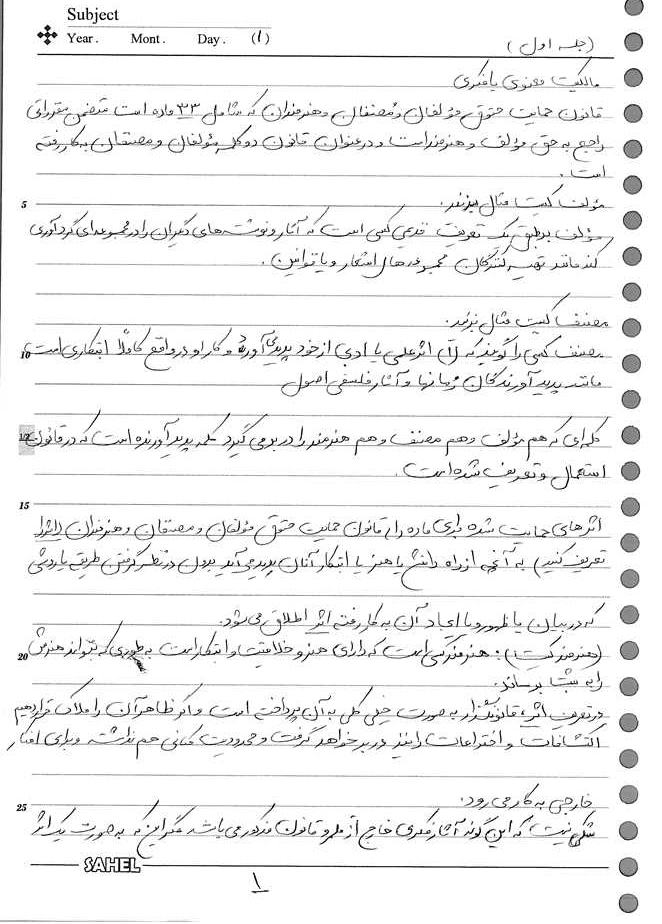 Subject
Year . Mont . Day . (1)
(جلسه اول)
مالکیت معنوی یا فکری
قانون حمایت حقوق مؤلفان و مصنفان و هنرمندان که شامل ۳۳ ماده است متضمن مقرراتی
راجع به حق مؤلف و هنرمند است و در عنوان قانون دو کلمه مؤلفان و مصنفان به کار رفته
است.
5
مؤلف کیست مثال بزنید.
مؤلف بر طبق یک تعریف قدیمی کسی است که آثار و نوشته های دیگران را در مجموعه ای گردآوری
کند مانند تهیه کنندگان مجموعه های اشعار و یا قوانین.
مصنف کیست مثال بزنید.
10
مصنف کسی را گویند که آن اثر علمی یا ادبی از خود پدید آورده و کار او در واقع کاملاً ابتکاری است
مانند پدید آورندگان رمانها و آثار فلسفی اصول
12
کلمه ای که هم مؤلف و هم مصنف و هم هنرمند را در بر می گیرد کلمه پدید آورنده است که در قانون
استعمال و تعریف شده است.
15
اثرهای حمایت شده برای ماده ۱ قانون حمایت حقوق مؤلفان و مصنفان و هنرمندان (اثر را
تعریف کنید) به آنچه از راه دانش یا هنر یا ابتکار آنان پدید می آید بدون در نظر گرفتن طریقه یا روشی
که در بیان یا ظهور و یا ایجاد آن به کار رفته اثر اطلاق می شود.
20
(هنرمند کیست): هنرمند کسی است که دارای هنر و خلاقیت و ابتکار است به طوری که بتواند هنرش
را به مثبتا برساند.
در تعریف اثر، قانونگذار به صورت خیلی کلی به آن پرداخته است و اگر ظاهر آن را ملاک قرار دهیم
اکتشافات و اختراعات را نیز در بر خواهد گرفت و محدودیت مکانی هم نداشته و برای افکار
25
خارجی به کار می رود.
شکی نیست که این گونه آثار فکری خارج از قلمرو قانون مذکور می باشد مگر این که به صورت یک اثر
SAHEL
۱